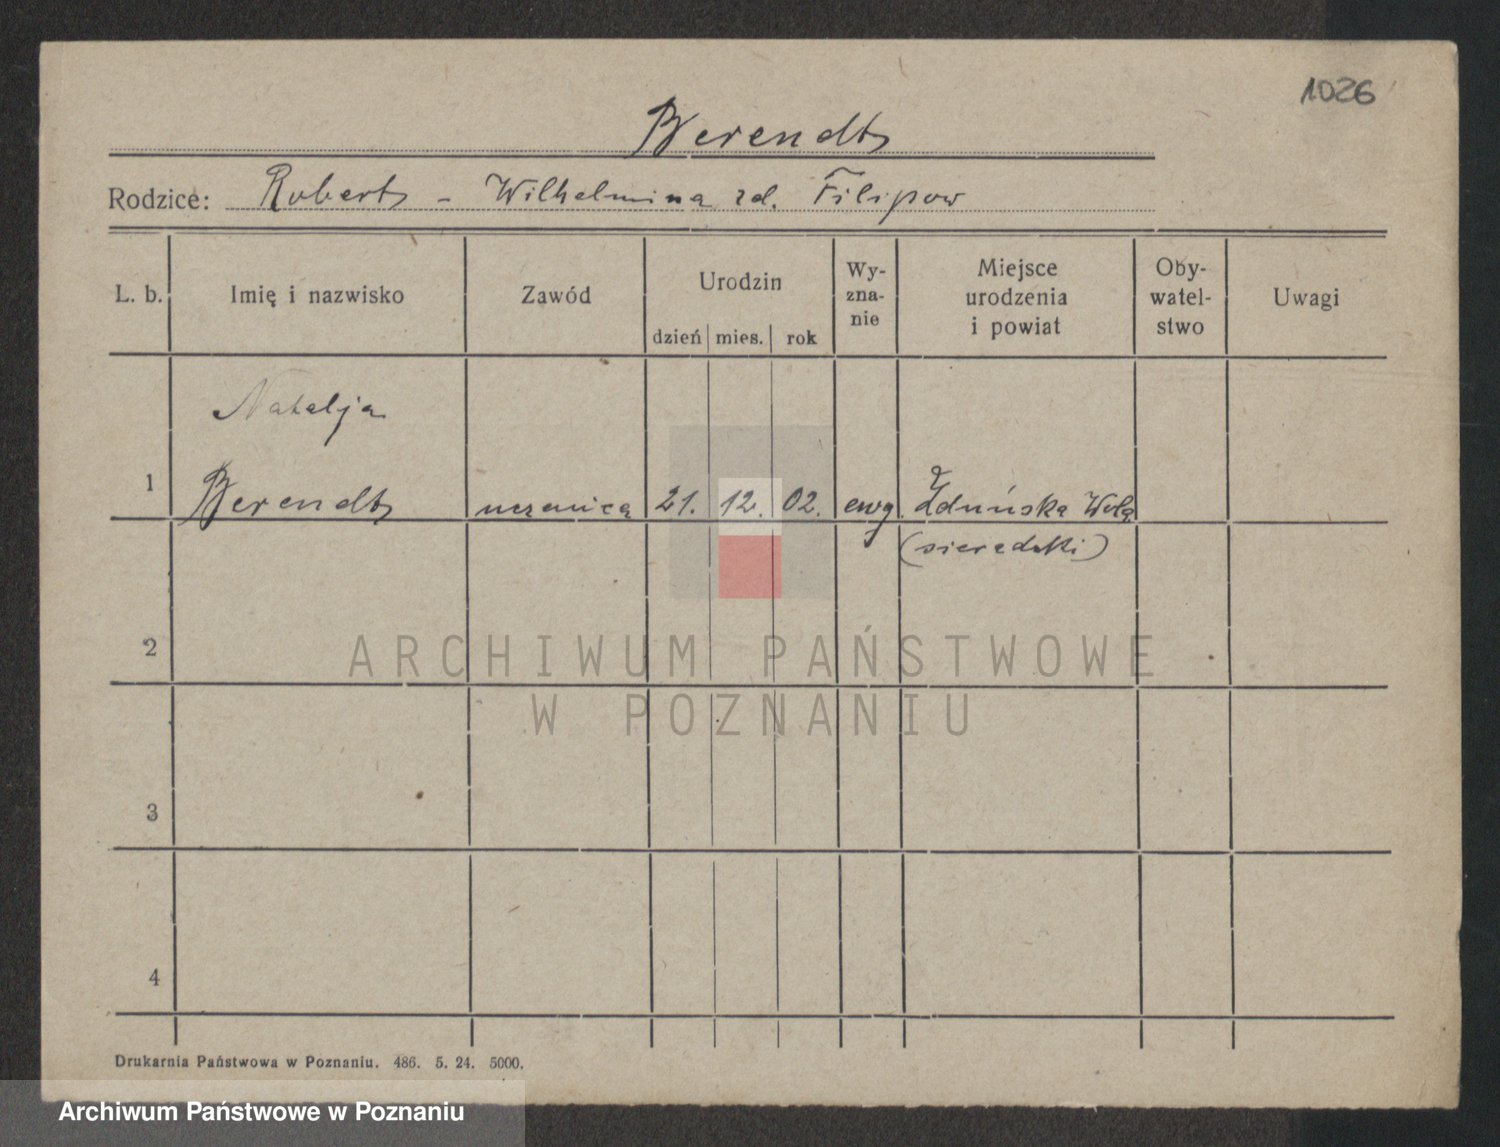 1026
Berendt
Rodzice: Robert - Wilhelmina zd. Filipow
L. b. Imię i nazwisko Zawód Urodzin dzień mies. rok Wy-zna-nie Miejsce urodzenia i powiat Oby-watel-stwo Uwagi
Natalja
1 Berendt uczenica 21. 12. 02. ewg. Zduńska Wola
(sieradzki)
2
ARCHIWUM PAŃSTWOWE
W POZNANIU
3
4
Drukarnia Państwowa w Poznaniu. 486. 5. 24. 5000.
Archiwum Państwowe w Poznaniu